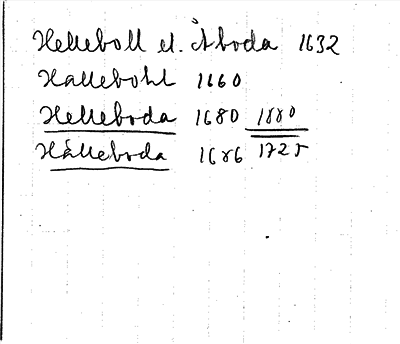 Helleboll el. Åboda 1632
Hallebohl 1660
Helleboda 1680 1880
Hälleboda 1686 1725